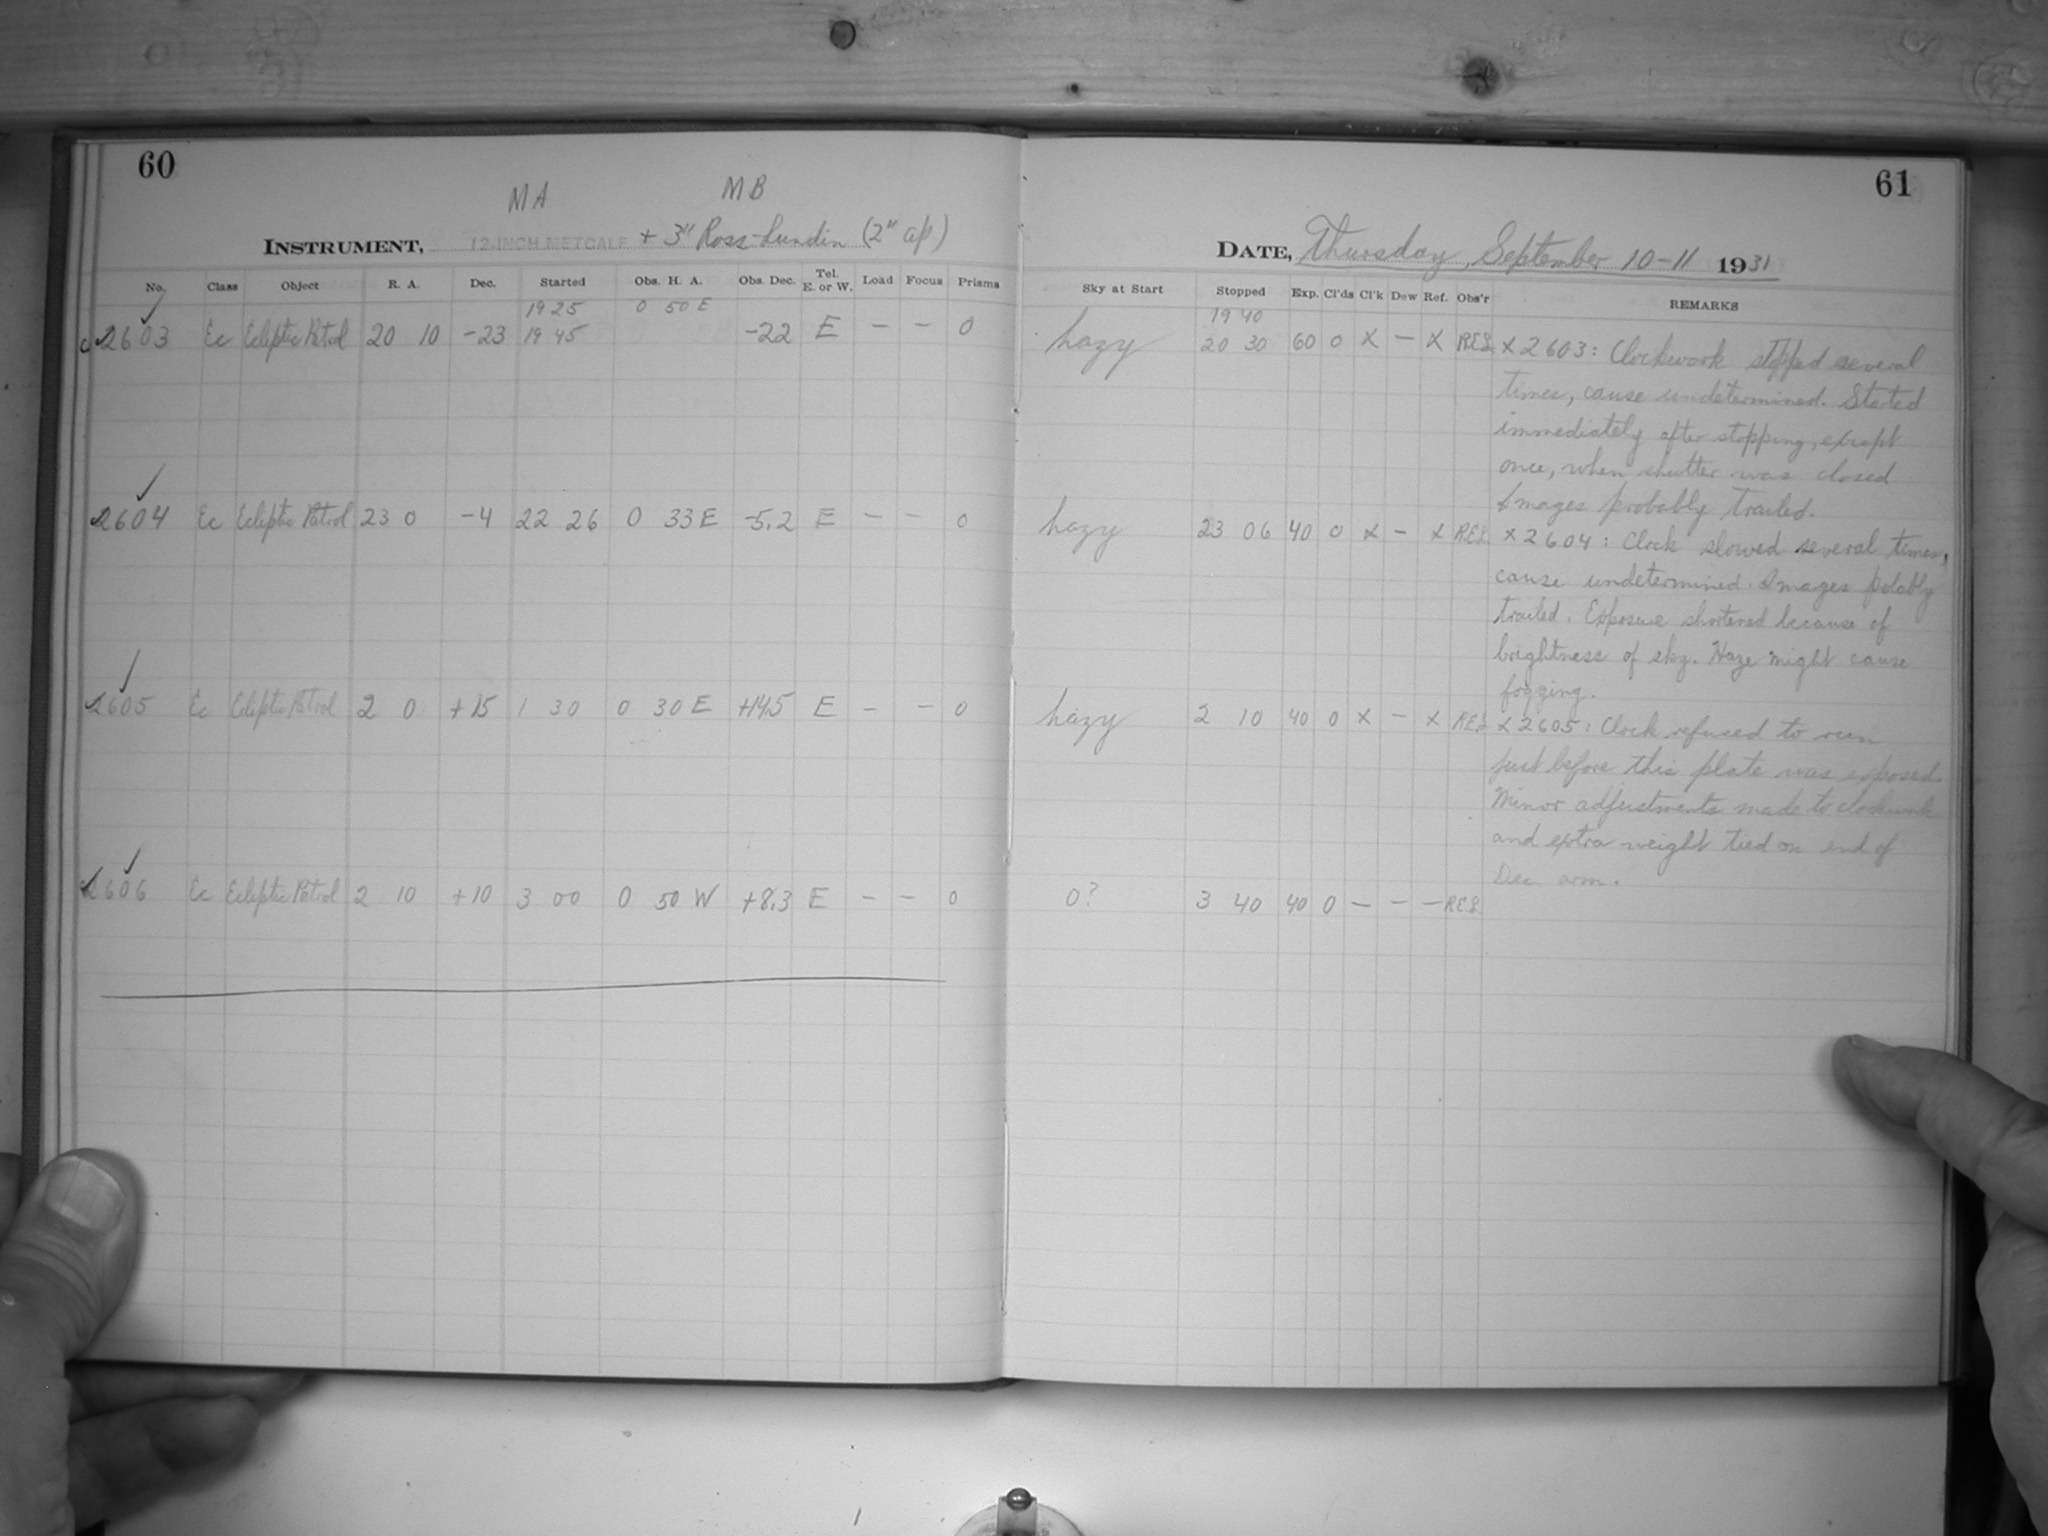 60
MA MB
INSTRUMENT, 12-INCH METCALF + 3" Ross-Lundin (2" ap.)
No. Class Object R. A. Dec. Started Obs. H. A. Obs. Dec. Tel. E. or W. Load Focus Prisms
19 25 0 50 E
2603 Ec Ecliptic Patrol 20 10 -23 19 45 -22 E — — 0
2604 Ec Ecliptic Patrol 23 0 -4 22 26 0 33 E -5.2 E — — 0
2605 Ec Ecliptic Patrol 2 0 +15 1 30 0 30 E +14.5 E — — 0
2606 Ec Ecliptic Patrol 2 10 +10 3 00 0 50 W +8.3 E — — 0
61
DATE, Thursday, September 10-11 1931
Sky at Start Stopped Exp. Cl'ds Cl'k Dew Ref. Obs'r REMARKS
19 40
hazy 20 30 60 0 x — x R.E.S. x 2603: Clockwork stopped several
times, cause undetermined. Started
immediately after stopping, except
once, when shutter was closed
Images probably trailed.
hazy 23 06 40 0 x — x R.E.S. x 2604: Clock slowed several times,
cause undetermined. Images
trailed. Exposure shortened because of
brightness of sky. Haze might cause
fogging.
hazy 2 10 40 0 x — x R.E.S. x 2605: Clock refused to run
just before this plate was exposed.
Minor adjustments made to clockwork
and extra weight tied on end of
Dec arm.
0? 3 40 40 0 — — — R.E.S.